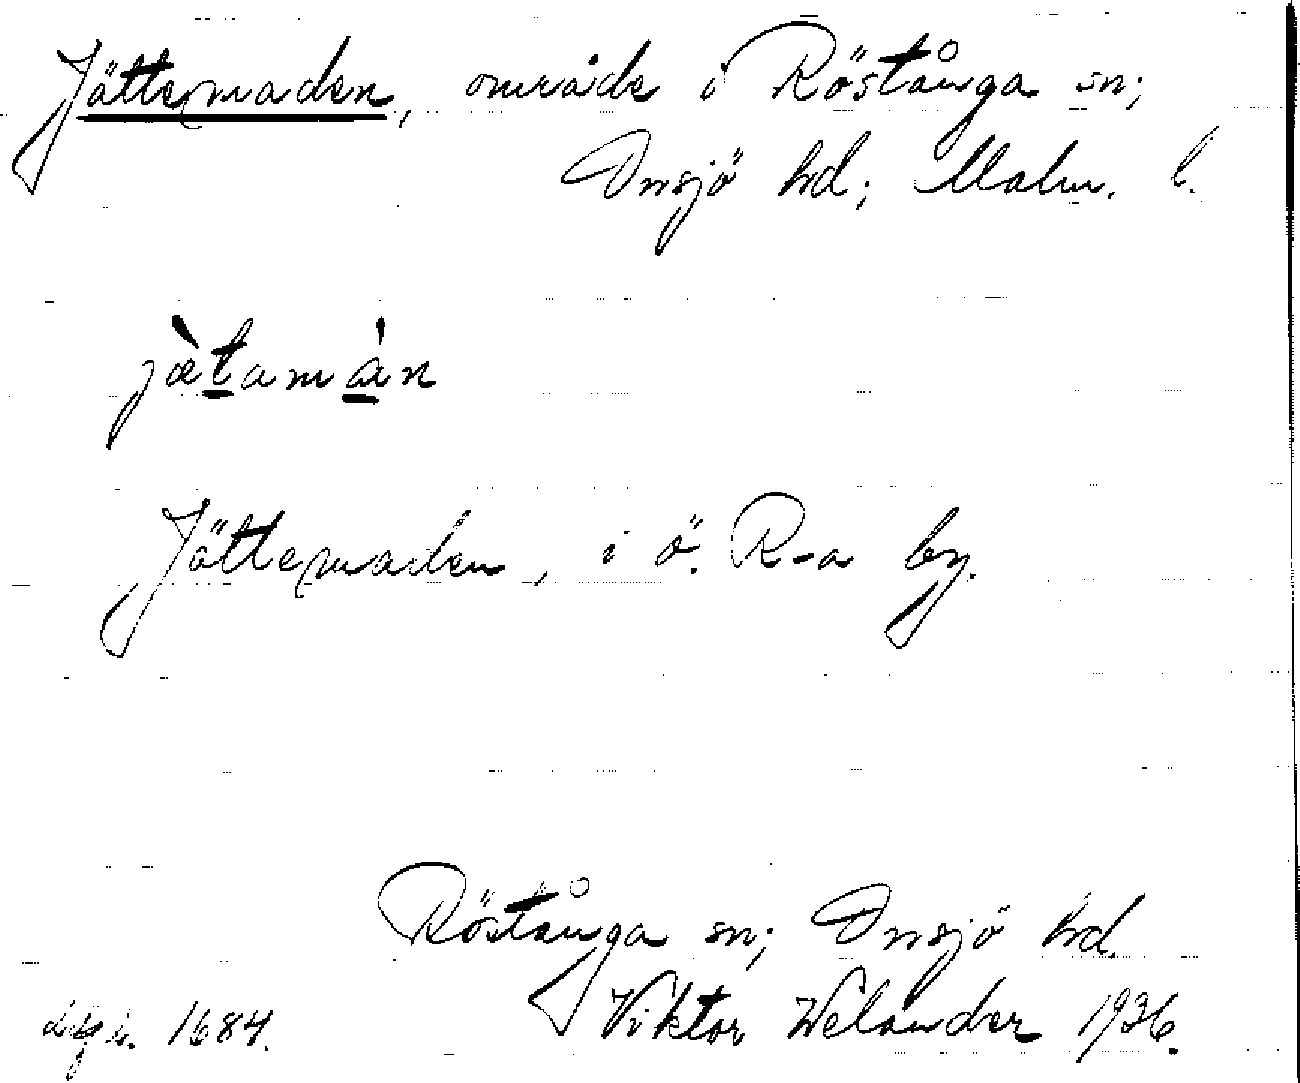 Jättemaden, område i Röstånga sn;
Onsjö hd; Malm. l.
jæ̀tamán
Jättemaden, i ö. R-a by.
Röstånga sn; Onsjö hd.
1684. Viktor Welander 1936.